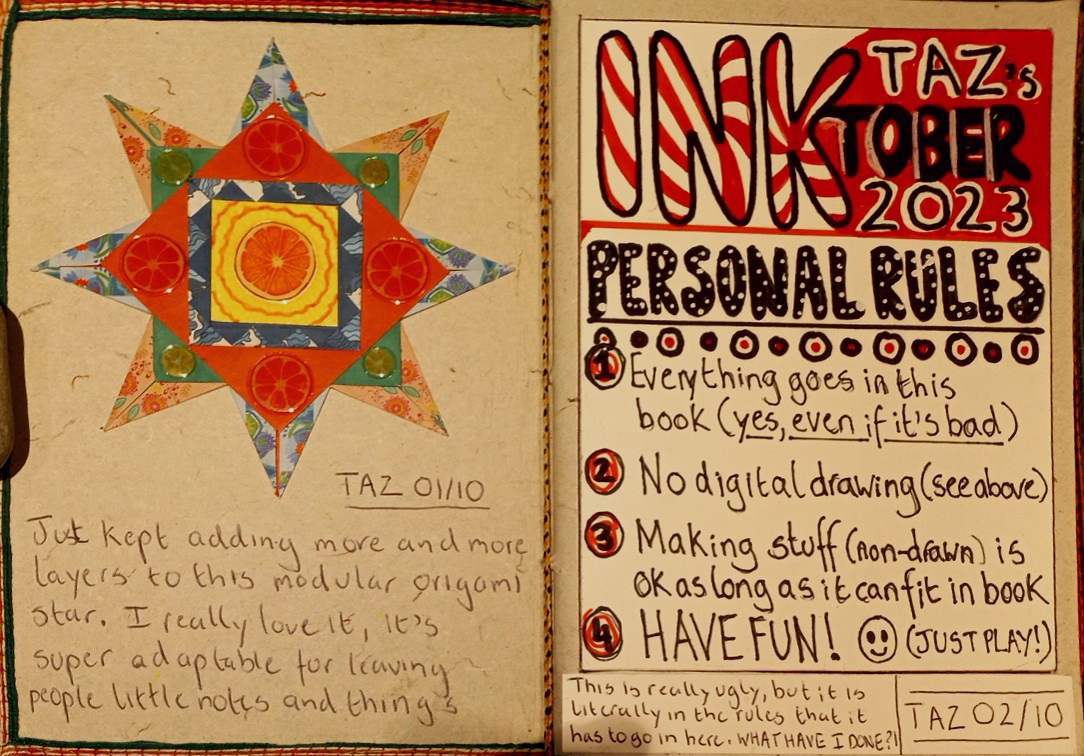 TAZ 01/10
Just kept adding more and more
layers to this modular origami
star. I really love it, it's
super adaptable for leaving
people little notes and thing's
INK TAZ's
TOBER
2023
PERSONAL RULES
1 Everything goes in this
book (yes, even if it's bad)
2 No digital drawing (see above)
3 Making stuff (non-drawn) is
ok as long as it can fit in book
4 HAVE FUN! (JUST PLAY!)
This is really ugly, but it is
literally in the rules that it
has to go in here. WHAT HAVE I DONE?!
TAZ 02/10